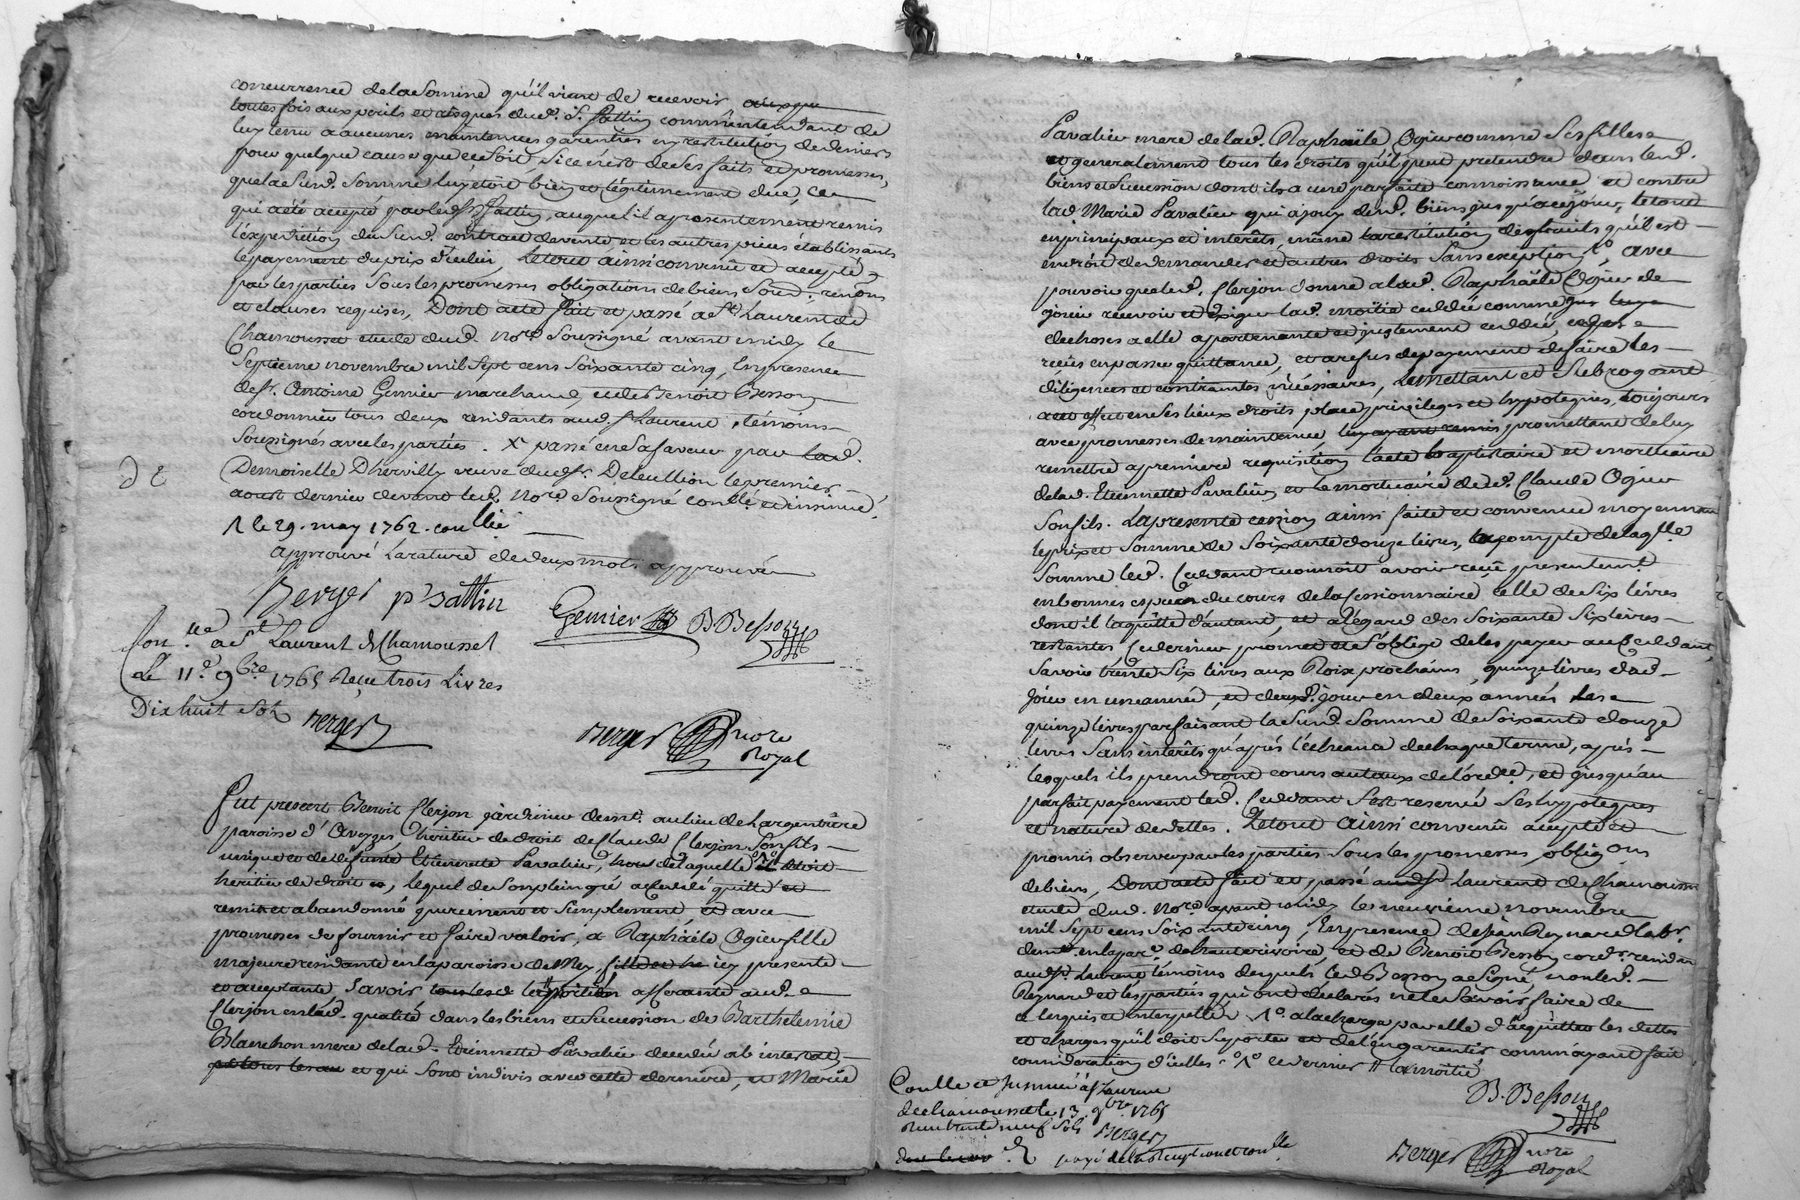 concurrence de la somme qu'il vient de recevoir
toutes fois aux perils et risques dud. Sr. Pattin comm'entendant de
luy tenir d'aucunes maintenues garenties ny restitution de deniers
pour quelque cause que ce soit, si ce n'est de ses faits et promesses,
que la susd. somme luy étoit bien et légitimement due, ce
qui a été accepté par led. Sr Pattin, auquel il a presentement remis
l'expedition du susd. contract de vente et les autres pieces établissants
le payement du prix d'icelui, Le tout ainsi convenu et accepté
par les parties sous les promesses obligations de biens soud. renons
et clauses requises, Dont acte fait et passé a St. Laurent de
Chamousset etude dud. nore. soussigné avant midy le
septieme novembre mil sept cens soixante cinq, En presence
de sr. Antoine Gemier marchand, et de Benoit Besson
cordonnier tous deux residants aud. St Laurent, témoins
soussignés avec les parties. X passé en sa faveur par lad.
Demoiselle Dhervilly veuve dud. sr. Deleullion le premier
aoust dernier devant led. nore. soussigné conllé. et insinué.
1 le 29. may 1762. conllé
approuvé la rature de deux mots approuvé
Berger p'Sattin
Gemier B Besson
Con.llé a St Laurent de Chamousset
Le 11e. 9bre 1765 Reçu trois Livres
Dix huit sols Berger
Berger nore
Royal
Fut present Benoit Clerjon jardinier demt. au lieu de Largentière
paroisse d'Aveyzes, héritier de droit de Claude Clerjon son fils
unique et de deffunte Etiennette Pavalier, de laquelle il étoit
heritier de droit, lequel de son plein gré a cedé quitté et
remis et abandonné purement et simplement, et avec
promesses de fournir et faire valoir, à Raphaële Ogier fille
majeure residante en la paroisse de Meys, icy presente
et acceptante Savoir la portion afferante aud.
Clerjon en lad. qualité dans les biens et succession de Barthelemie
Blanchon mere de lad. Etiennette Pavalier decedée ab intestat
et qui sont indivis avec cette derniere, et Marie
Pavalier mere de lad. Raphaële Ogier comme ses filles
et generalement tous les droits qu'il peut pretendre dans lesd.
biens et succession dont il a une parfaite connoissance et contre
lad. Marie Pavalier qui a jouy desd. biens jusqu'à ce jour, le tout
en principaux et interêts, même la restitution des fruits qu'il est
en droit de demander et autres droits sans exception 1o, avec
pouvoir que led. Clerjon donne a lad. Raphaële Ogier de
jouir recevoir et exiger lad. moitié cedée comme
de choses a elle appartenante et justement cedée,
reçus en passer quittance, et a refus de payement de faire les
diligences et contraintes nécessaires, La mettant et subrogeant
a cet effet en ses lieux droits, place, privileges et hypoteques, toujours
avec promesses de maintenue, promettant de luy
remettre a premiere requisition l'acte baptistaire et mortuaire
de lad. Etiennette Pavalier et le mortuaire dud. Claude Ogier
son fils. La presente cession ainsi faite et convenue moyennant
le prix et somme de soixante douze livres, a compte de laqlle
somme led. cedant reconnoit avoir reçu presentement
en bonnes especes du cours de la cessionnaire celle de six livres
dont il la quitte d'autant, et a l'égard des soixante six livres
restantes promet et s'oblige de les payer au cedant,
savoir trente six livres aux Roix prochains, quinze livres dud.
jour en une année, et dud. jour en deux années les
quinze livres parfaisant la susd. somme de soixante douze
livres sans interêts qu'après l'échéance de chaque terme, après
lesquels ils prendront cours au taux de l'ordce, et jusqu'au
parfait payement led. cedant s'est reservé ses hypoteques
et nature de dettes. Le tout ainsi convenu accepté et
promis observer par les parties sous les promesses, obligons
de biens, Dont acte fait et passé aud. St Laurent de Chamousset
etude dud. nore. avant midy le neuvieme novembre
mil sept cens soixante cinq, En presence de Jean Reynard labr.
demt. en la par. de hauterivoire, et de Benoit Besson cordr. residt.
aud. St Laurent témoins desquels led. Besson a signé, non led.
Reynard et les parties qui ont déclarés ne le savoir faire de
ce enquis et interpellé 1o. a la charge par elle d'acquitter les dettes
et charges qu'il doit suporter et de l'en garentir comm'ayant fait
consideration d'icelles 1o ce dernier # la moitié
B. Besson
Conllé et Insinué a St Laurent
de chamousset le 13. 9bre 1765
Reçu trente neuf sols Berger
Berger nore
Royal